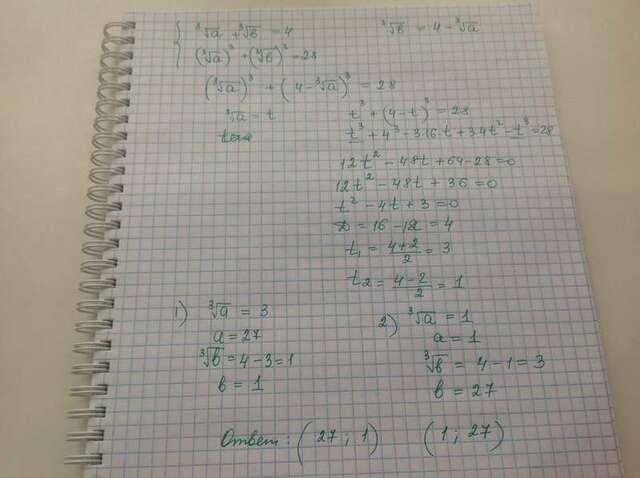 ∛a + ∛b = 4
∛b = 4 - ∛a
(∛a)³ + (∛b)³ = 28
(∛a)³ + (4 - ∛a)³ = 28
∛a = t
t³ + (4 - t)³ = 28
t³ + 4³ - 3·16·t + 3·4t² - t³ = 28
12t² - 48t + 64 - 28 = 0
12t² - 48t + 36 = 0
t² - 4t + 3 = 0
D = 16 - 12 = 4
t₁ = (4+2)/2 = 3
t₂ = (4-2)/2 = 1
1) ∛a = 3
a = 27
∛b = 4 - 3 = 1
b = 1
2) ∛a = 1
a = 1
∛b = 4 - 1 = 3
b = 27
Ответ: (27; 1) (1; 27)